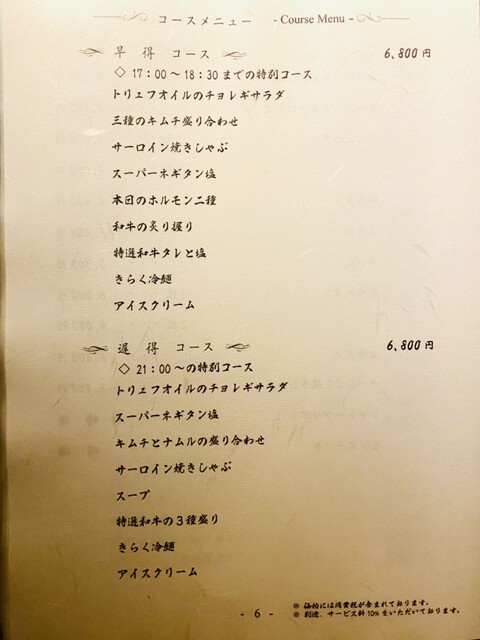 コースメニュー - Course Menu -
早得 コース 6,800円
◇ 17：00～18：30までの特別コース
トリュフオイルのチョレギサラダ
三種のキムチ盛り合わせ
サーロイン焼きしゃぶ
スーパーネギタン塩
本日のホルモン二種
和牛の炙り握り
特選和牛タレと塩
きらく冷麺
アイスクリーム
遅得 コース 6,800円
◇ 21：00～の特別コース
トリュフオイルのチョレギサラダ
スーパーネギタン塩
キムチとナムルの盛り合わせ
サーロイン焼きしゃぶ
スープ
特選和牛の3種盛り
きらく冷麺
アイスクリーム
※ 価格には消費税が含まれております。
※ 別途、サービス料10%をいただいております。
- 6 -